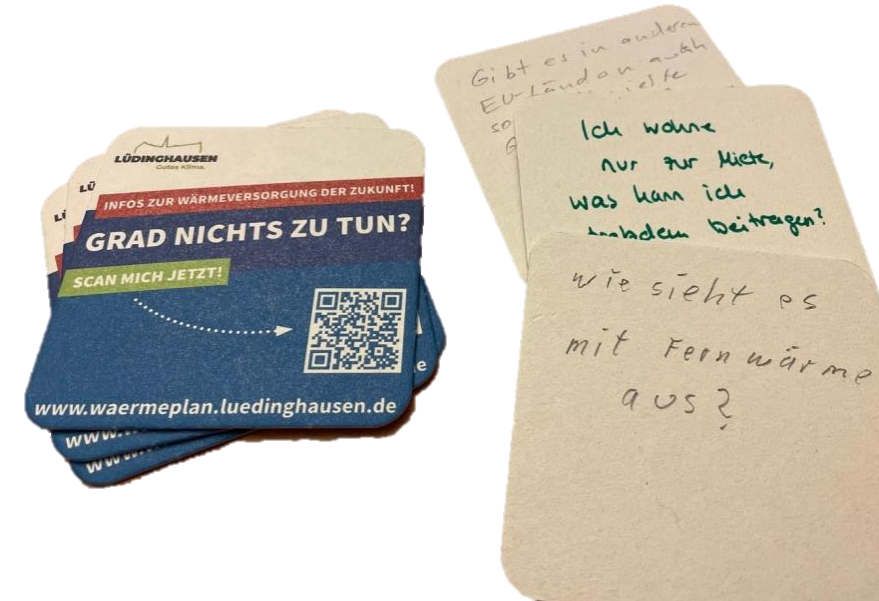 LÜDINGHAUSEN
Gutes Klima.
INFOS ZUR WÄRMEVERSORGUNG DER ZUKUNFT!
GRAD NICHTS ZU TUN?
SCAN MICH JETZT!
www.waermeplan.luedinghausen.de
LÜ
LÜ
e
www.w
www.
Gibt es in anderen
EU-Ländern auch
so
G
Ich wohne
nur zur Miete,
was kann ich
trotzdem beitragen?
wie sieht es
mit Fernwärme
aus?